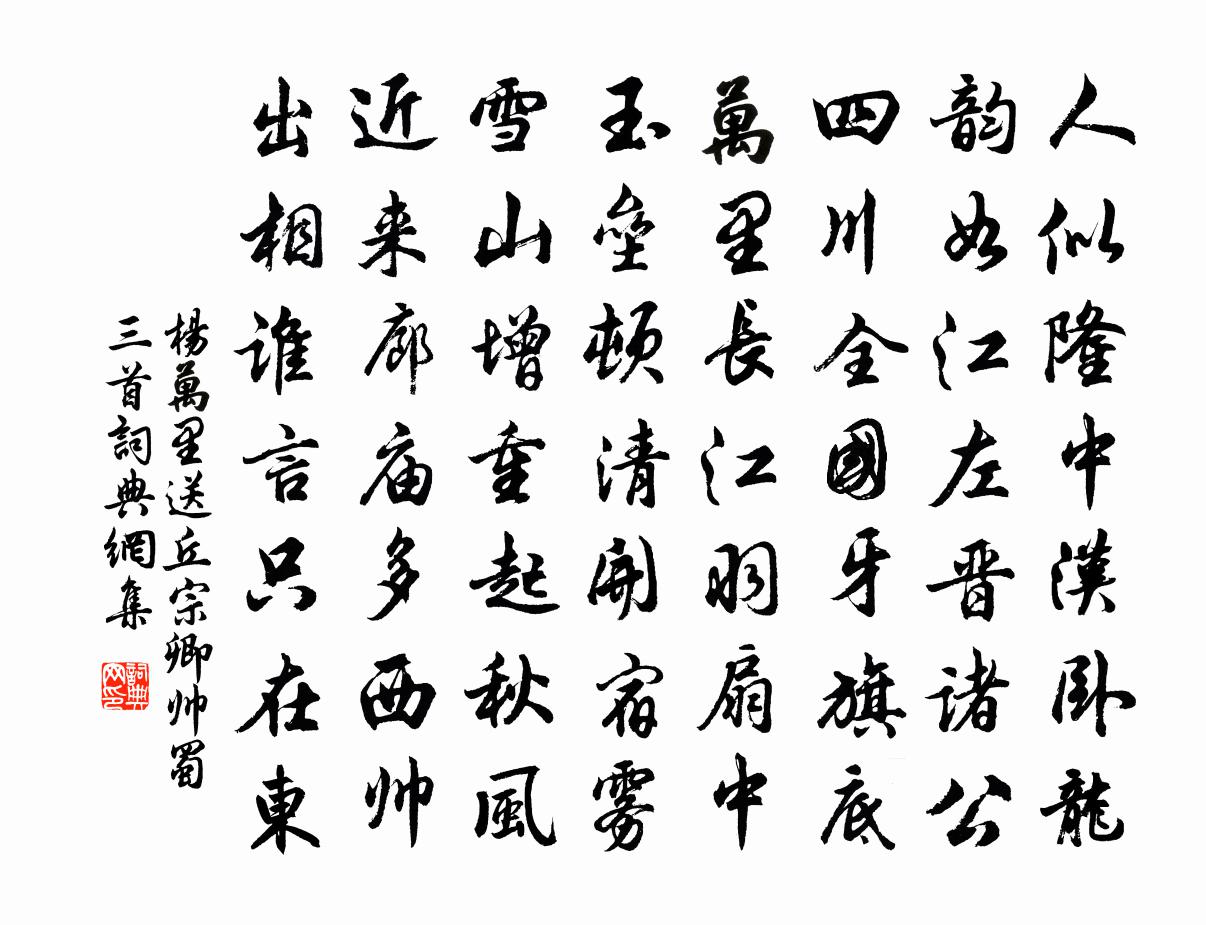 人似隆中漢卧龍
韵如江左晋诸公
四川全國牙旗底
萬里長江羽扇中
玉壘頓清開宿雾
雪山增重起秋風
近来廊庙多西帅
出相谁言只在東
楊萬里送丘宗卿帅蜀
三首詞典網集
詞典网印